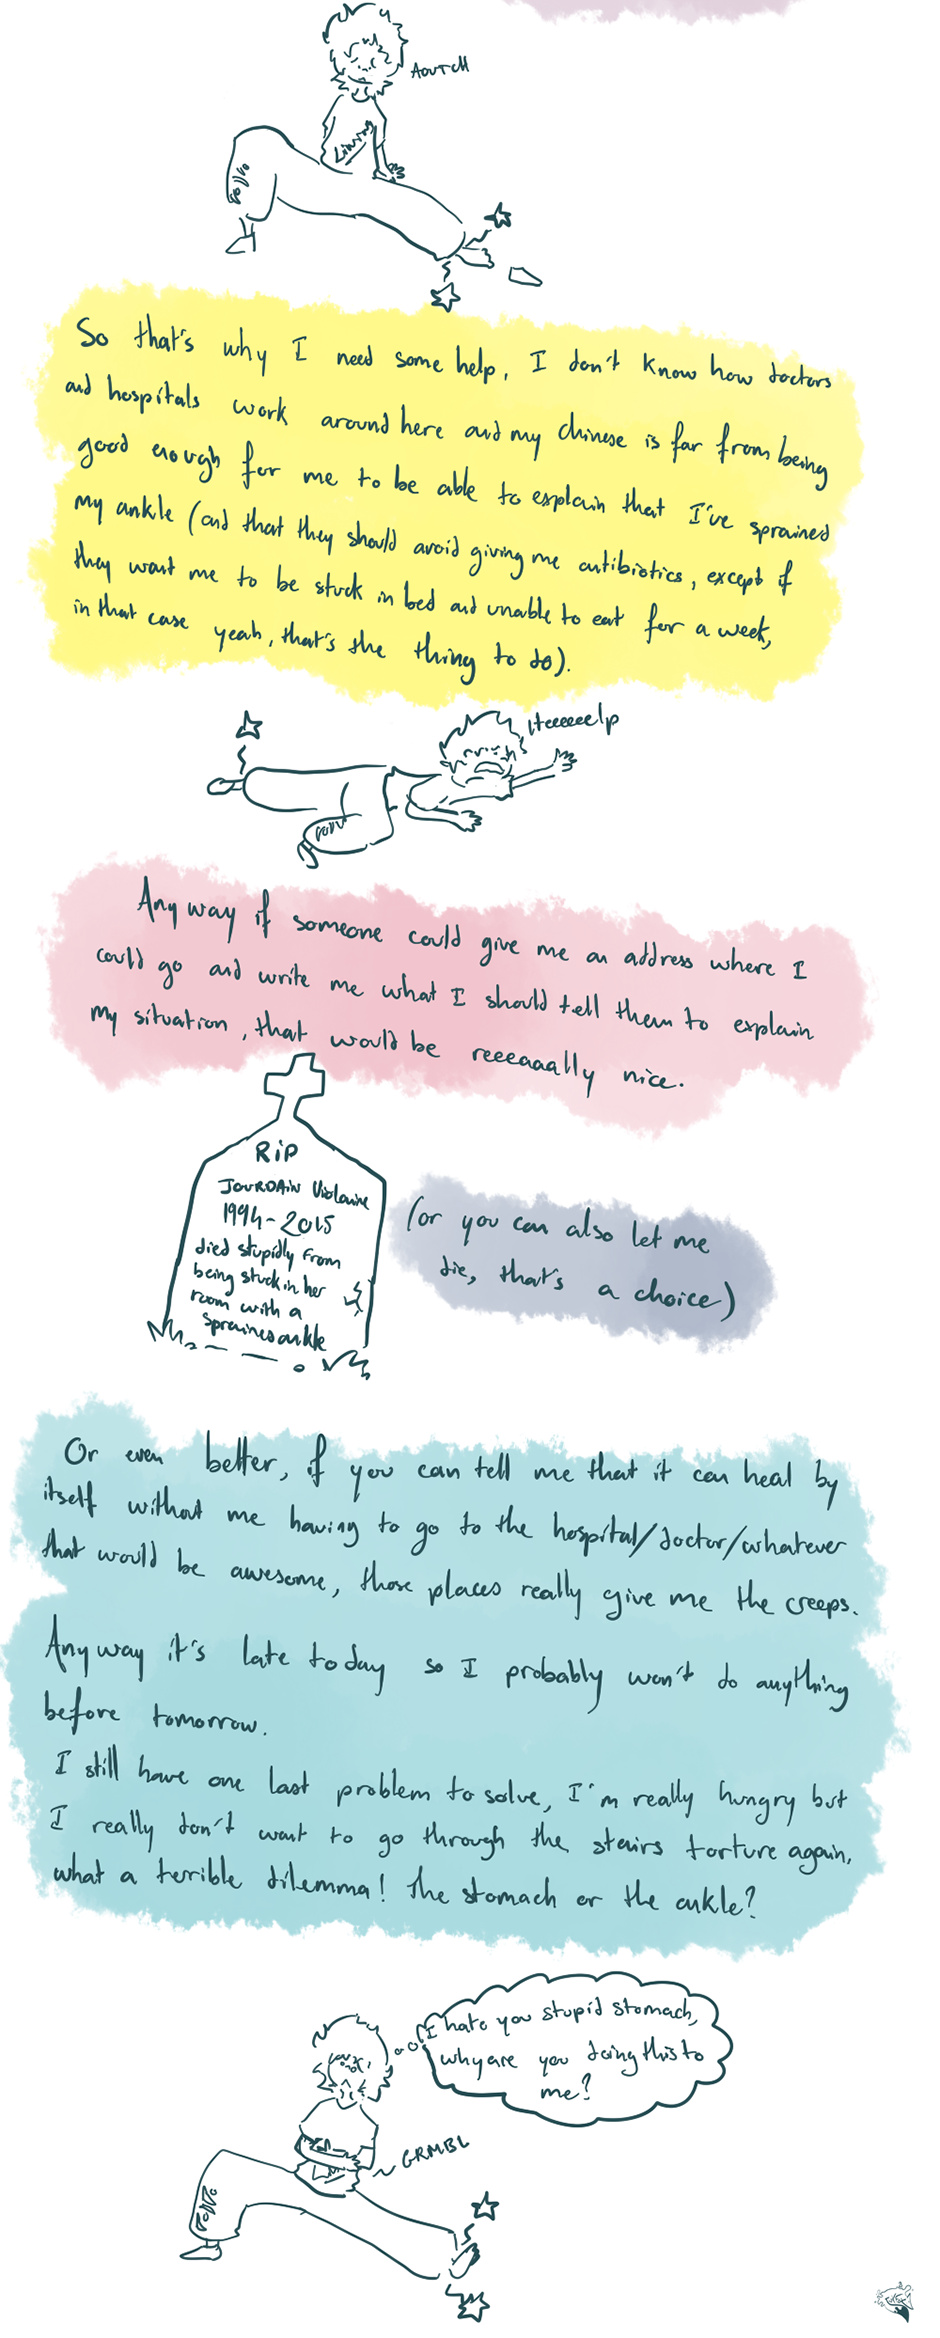 AOUTCH
So that's why I need some help, I don't know how doctors
and hospitals work around here and my chinese is far from being
good enough for me to be able to explain that I've sprained
my ankle (and that they should avoid giving me antibiotics, except if
they want me to be stuck in bed and unable to eat for a week,
in that case yeah, that's the thing to do).
Heeeeeelp
Anyway if someone could give me an address where I
could go and write me what I should tell them to explain
my situation, that would be reeeaaally nice.
RiP
JOURDAiN Violaine
1994-2015
died stupidly from
being stuck in her
room with a
sprained ankle
(or you can also let me
die, that's a choice)
Or even better, if you can tell me that it can heal by
itself without me having to go to the hospital/doctor/whatever
that would be awesome, those places really give me the creeps.
Anyway it's late today so I probably won't do anything
before tomorrow.
I still have one last problem to solve, I'm really hungry but
I really don't want to go through the stairs torture again,
what a terrible dilemma! The stomach or the ankle?
I hate you stupid stomach,
why are you doing this to
me?
GRMBL